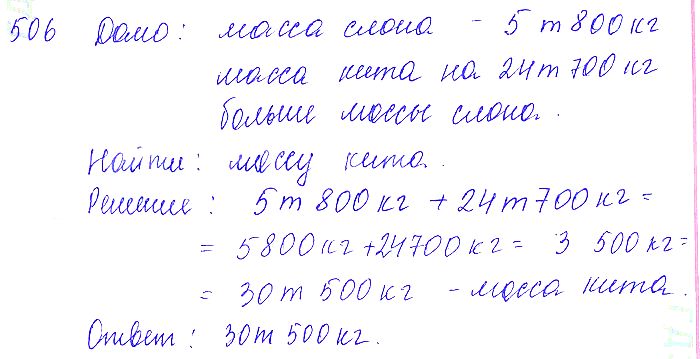 506 Дано: масса слона - 5 т 800 кг
масса кита на 24 т 700 кг
больше массы слона.
Найти: массу кита.
Решение: 5 т 800 кг + 24 т 700 кг =
= 5800 кг + 24700 кг = 3 500 кг =
= 30 т 500 кг - масса кита.
Ответ: 30 т 500 кг.